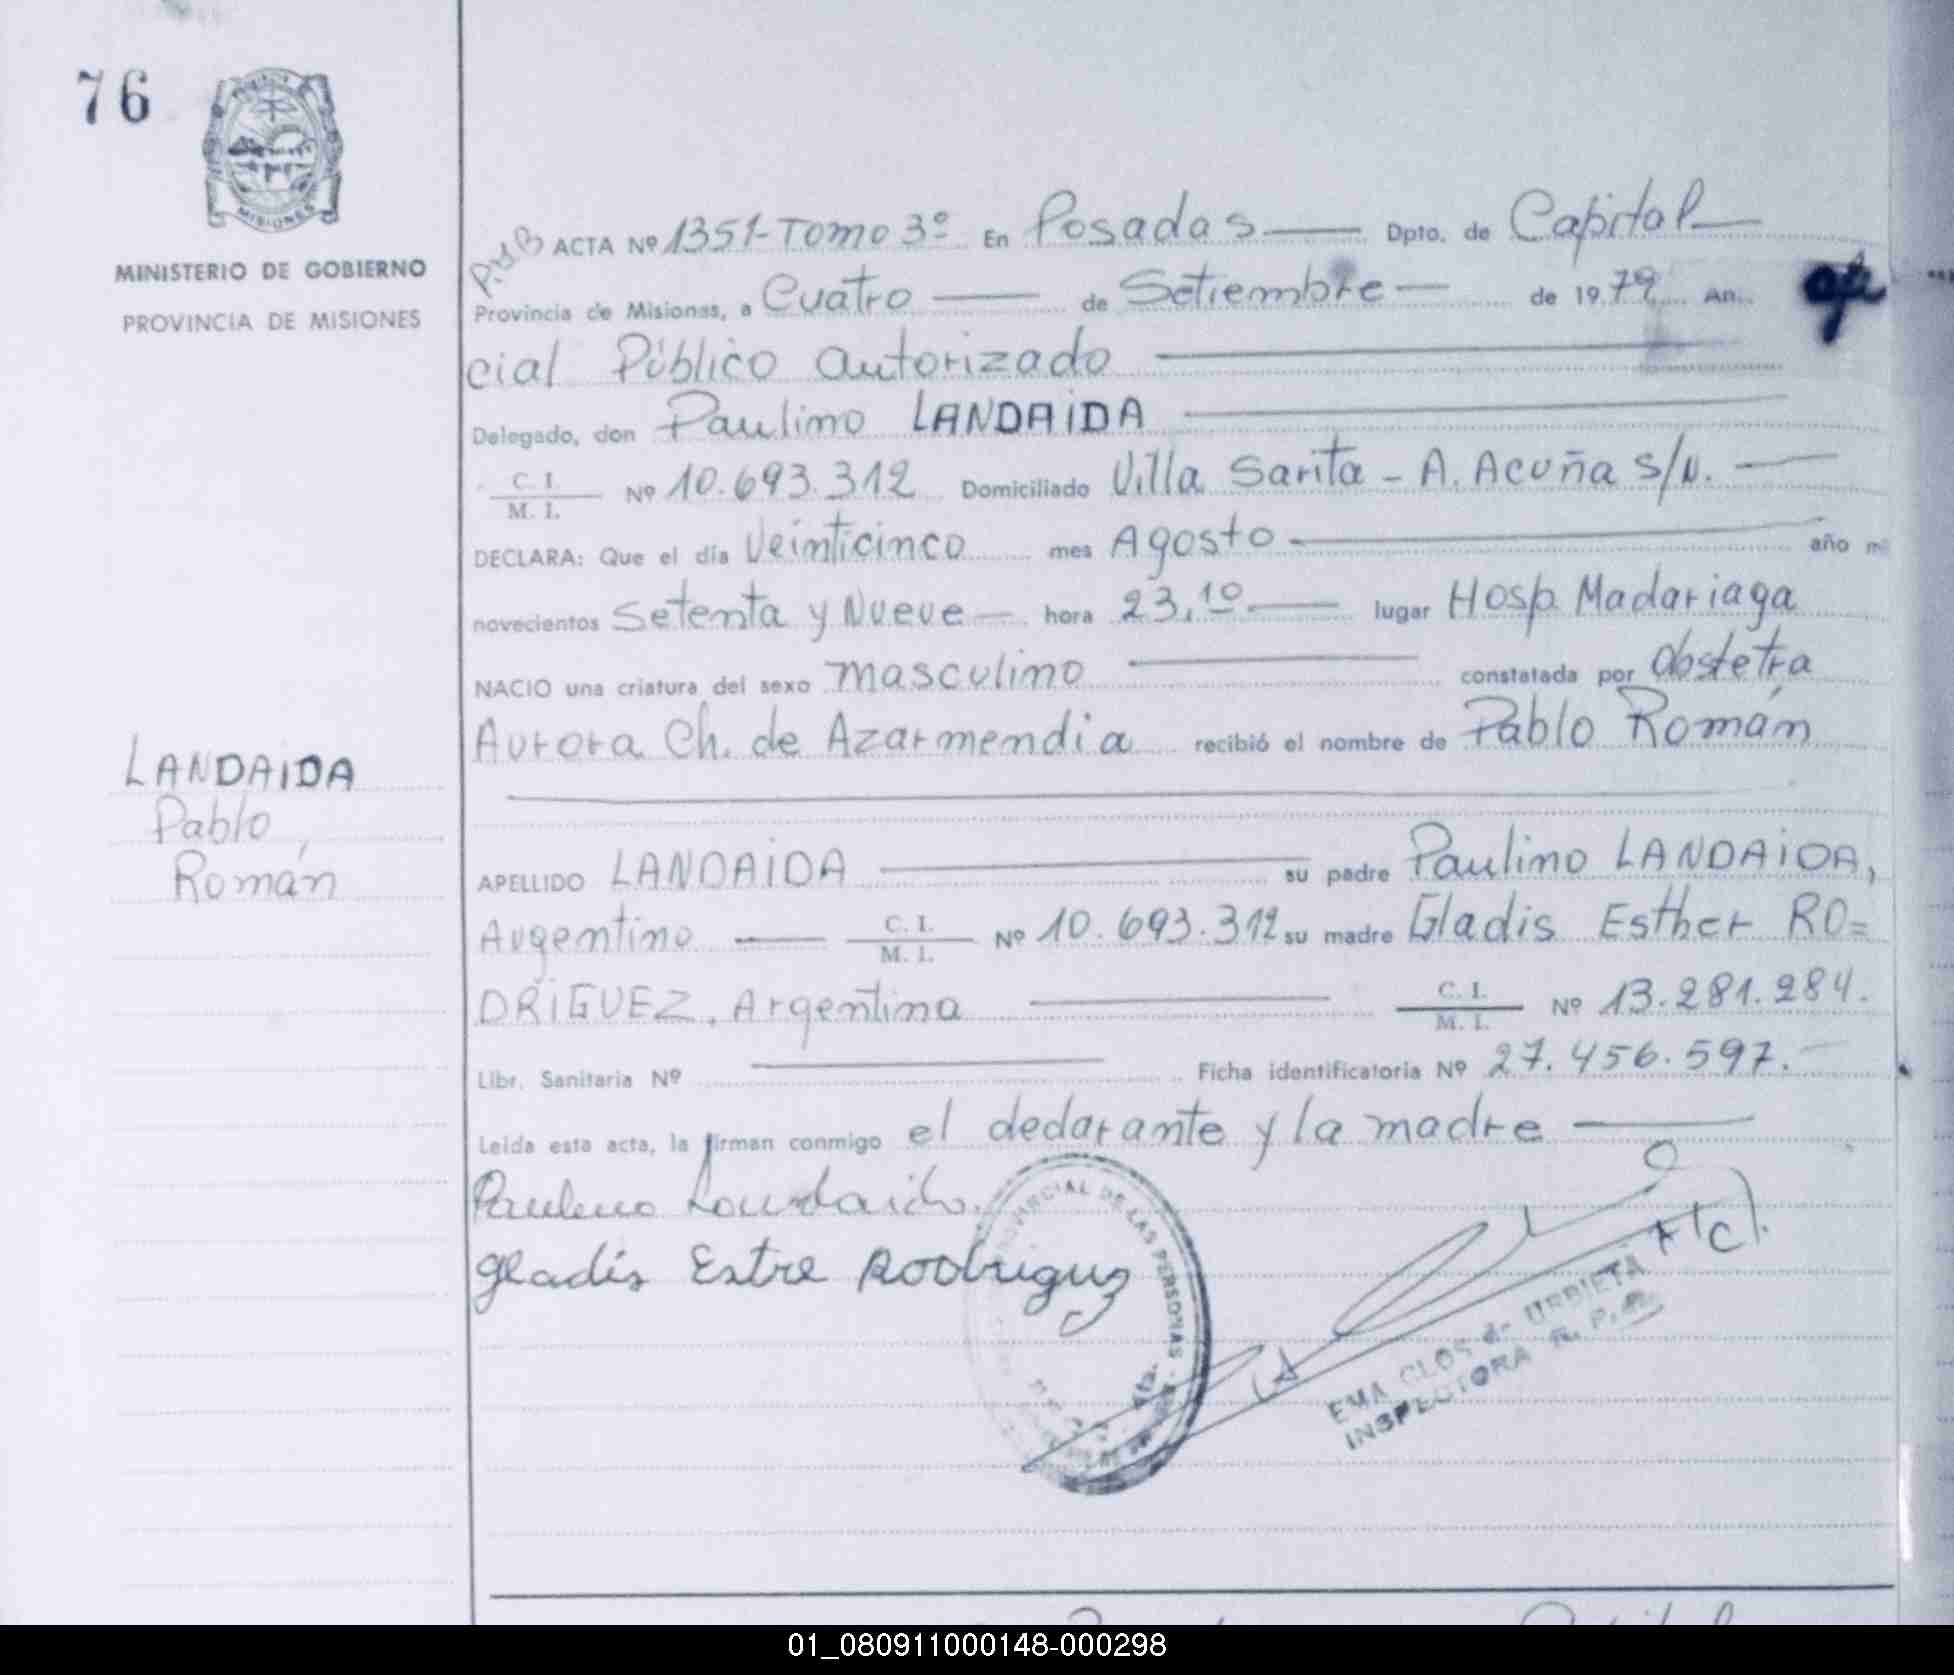 76
MISIONES
MINISTERIO DE GOBIERNO
PROVINCIA DE MISIONES
LANDAIDA
Pablo
Román
ACTA Nº 1351-Tomo 3º En Posadas Dpto. de Capital
Provincia de Misiones, a Cuatro de Setiembre de 1979 An..
cial Público autorizado
Delegado, don Paulino LANDAIDA
C. I.
M. I. Nº 10.693.312 Domiciliado Villa Sarita - A. Acuña s/N.
DECLARA: Que el día Veinticinco mes Agosto año mi
novecientos Setenta y Nueve hora 23,10 lugar Hosp. Madariaga
NACIO una criatura del sexo masculino constatada por Obstetra
Aurora Ch. de Azarmendia recibió el nombre de Pablo Román
APELLIDO LANDAIDA su padre Paulino LANDAIDA,
Argentino C. I. M. I. Nº 10.693.312 su madre Gladis Esther RO=
DRIGUEZ, Argentina C. I. M. I. Nº 13.281.284.
Libr. Sanitaria Nº Ficha identificatoria Nº 27.456.597.
Leída esta acta, la firman conmigo el declarante y la madre
Paulino Landaida.
gladis Estre Rodriguez
PROVINCIAL DE LAS PERSONAS
EMA CLOS de URBIETA
INSPECTORA R. P. P.
01_080911000148-000298